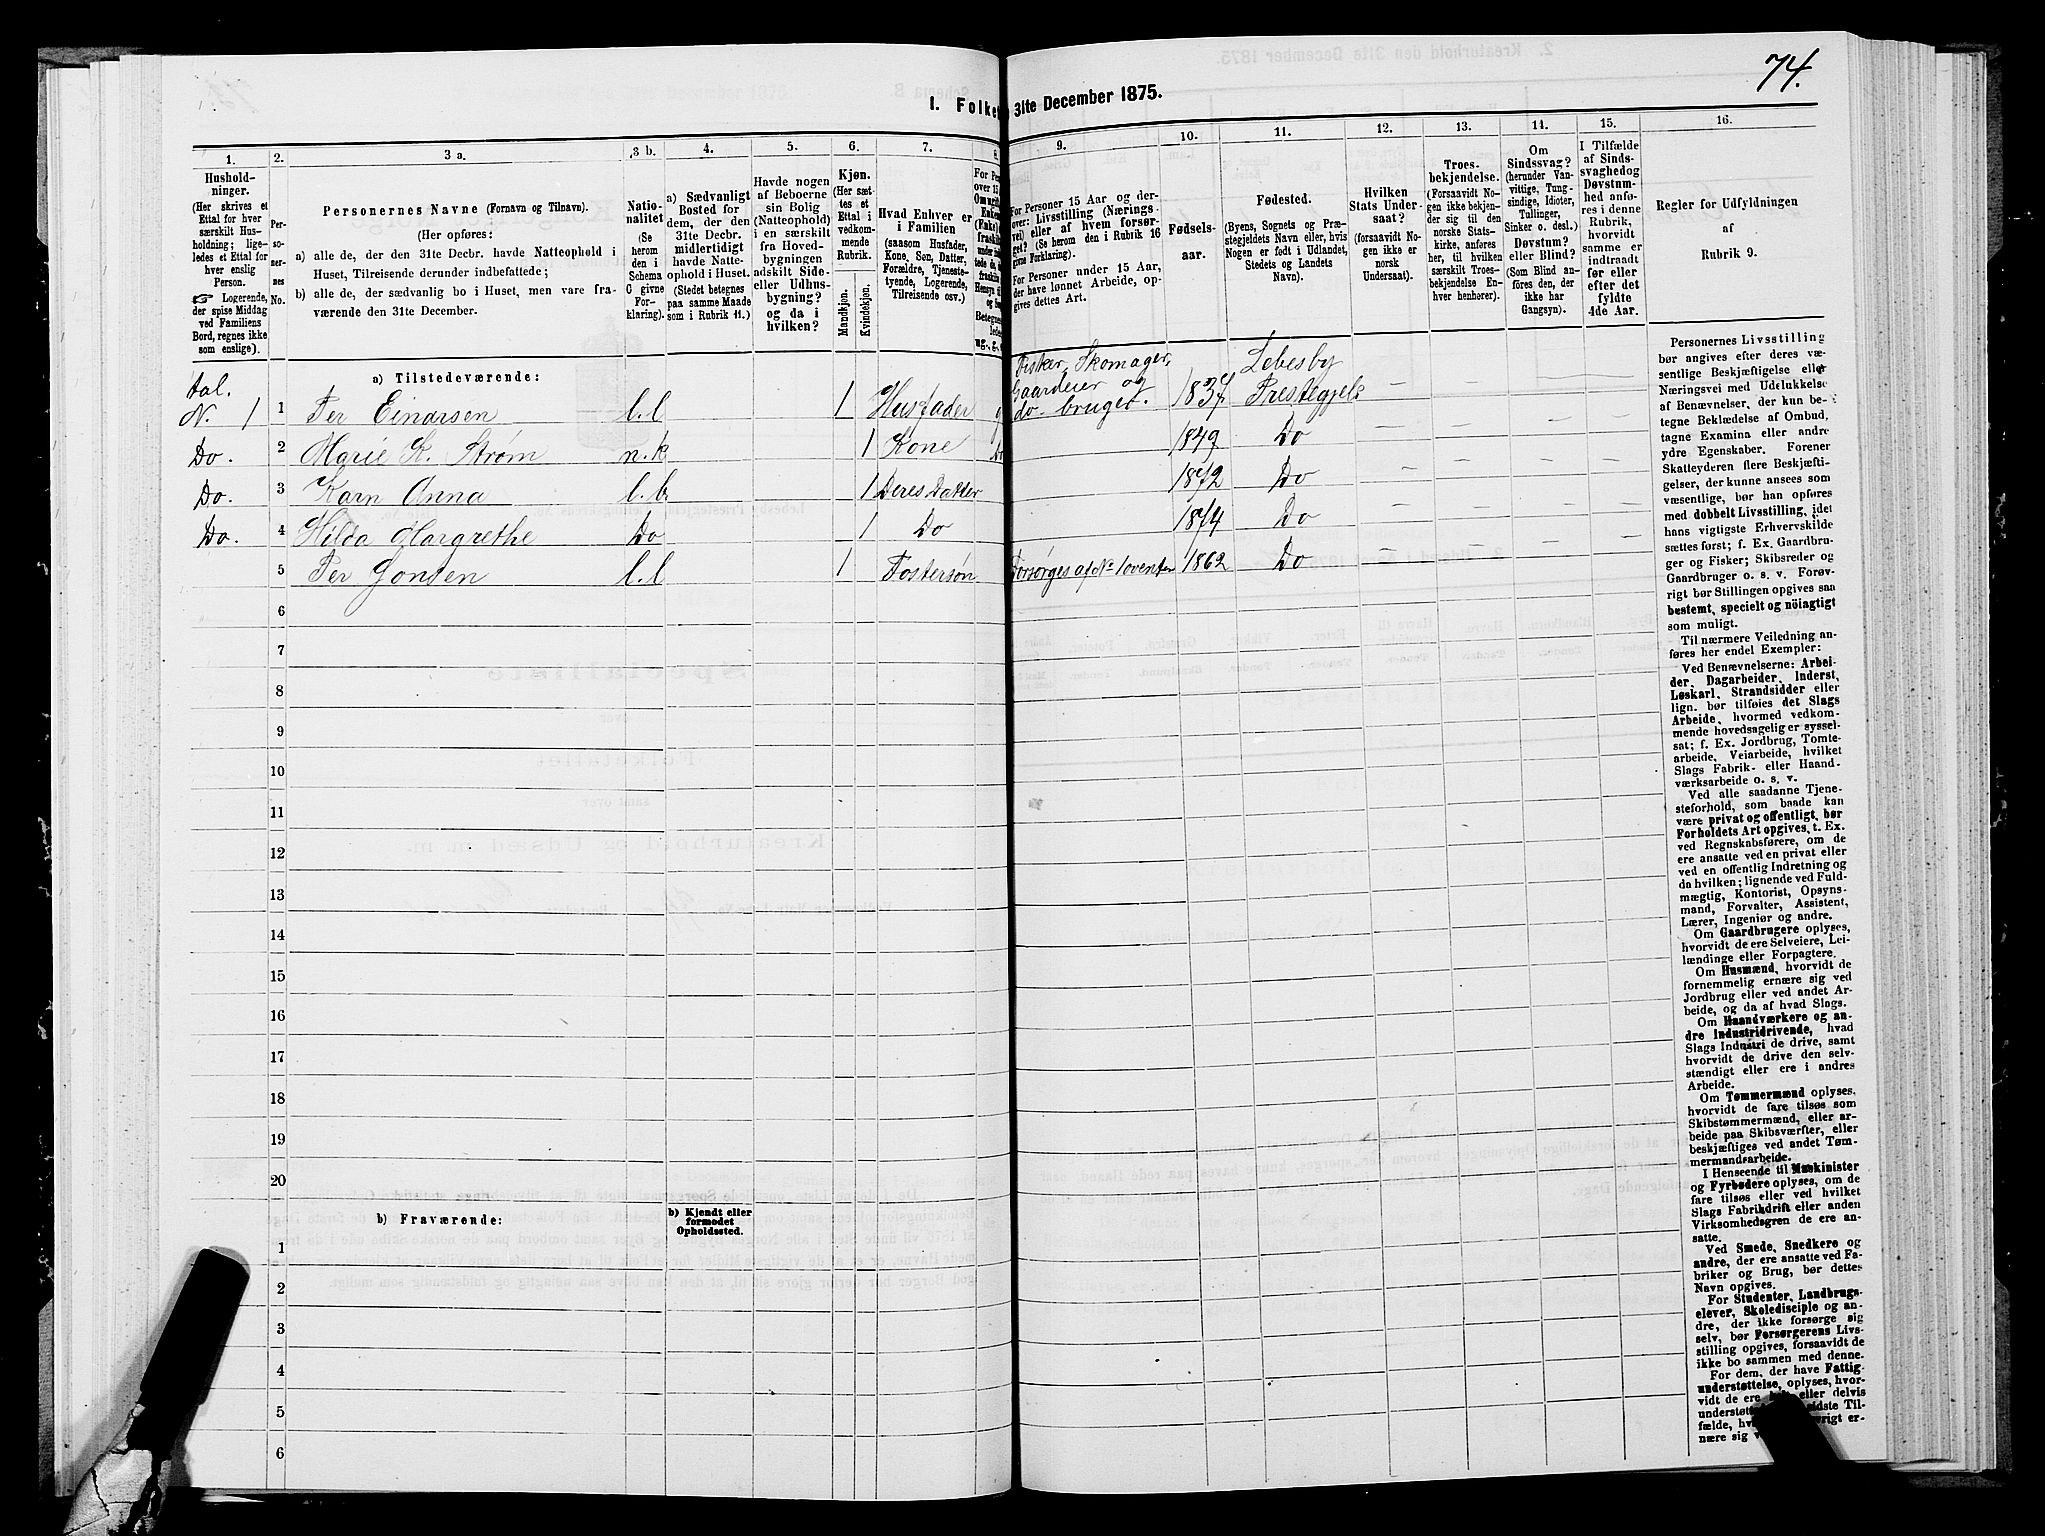 74.
I. Folket
31te December 1875.
1. 2. 3 a. 3 b. 4. 5. 6. 7. 8. 9. 10. 11. 12. 13. 14. 15. 16.
Hushold-
ninger.
(Her skrives et
Ettal for hver
særskilt Hus-
holdning; lige-
ledes et Ettal for
hver enslig
Person.
☞ Logerende,
der spise Middag
ved Familiens
Bord, regnes ikke
som enslige).
Per-
so-
ner-
nes
No.
Personernes Navne (Fornavn og Tilnavn).
(Her opføres:
a) alle de, der den 31te Decbr. havde Natteophold i
Huset, Tilreisende derunder indbefattede;
b) alle de, der sædvanlig bo i Huset, men vare fra-
værende den 31te December.
Natio-
nalitet
(Se
herom
den i
Schema
C givne
For-
klaring).
a) Sædvanligt
Bosted for
dem, der den
31te Decbr.
midlertidigt
havde Natte-
ophold i Huset.
(Stedet betegnes
paa samme Maade
som i Rubrik 11.)
Havde nogen
af Beboerne
sin Bolig
(Natteophold)
i en særskilt
fra Hoved-
bygningen
adskilt Side-
eller Udhus-
bygning?
og da i
hvilken?
Kjøn.
(Her sæt-
tes et
Ettal i
vedkom-
mende
Rubrik.
Mandkjøn.
Kvindekjøn.
Hvad Enhver er
i Familien
(saasom Husfader,
Kone, Søn, Datter,
Forældre, Tjeneste-
tyende, Logerende,
Tilreisende osv.)
For Personer 15 Aar og der-
over: Livsstilling (Nærings-
vei) eller af hvem forsør-
get? (Se herom den i Rubrik 16
givne Forklaring).
For Personer under 15 Aar,
der have lønnet Arbeide, op-
gives dettes Art.
Fødsels-
aar.
Fødested.
(Byens, Sognets og Præ-
stegjeldets Navn eller, hvis
Nogen er født i Udlandet,
Stedets og Landets
Navn).
Hvilken
Stats Under-
saat?
(forsaavidt No-
gen ikke er
norsk
Undersaat).
Troes-
bekjendelse.
(Forsaavidt No-
gen ikke bekjen-
der sig til den
norske Stats-
kirke, anføres
her, til hvilken
særskilt Troes-
bekjendelse En-
hver henhører).
Om
Sindssvag?
(herunder Van-
vittige, Tung-
sindige, Idioter,
Tullinger,
Sinker o. desl.)
Døvstum?
eller Blind?
(Som Blind an-
føres den, der
ikke har
Gangsyn).
I Tilfælde
af Sinds-
svaghed og
Døvstum-
hed anfø-
res i denne
Rubrik,
hvorvidt
samme er
indtraadt
før eller
efter det
fyldte
4de Aar.
Regler for Udfyldningen
af
Rubrik 9.
a) Tilstedeværende:
N. 1 1 Per Einarsen l.l 1 Husfader Fisker, Skomager, Gaardeier og do-bruger. 1837 Lebesby Prestegjeld — — — —
Do. 2 Marie K. Strøm n.k 1 Kone 1849 Do — — — —
Do. 3 Karn Anna l.b. 1 Deres Datter 1872 Do — — — —
Do. 4 Hilda Margrethe Do 1 Do 1874 Do — — — —
5 Per Jonsen l.l 1 Fostersøn Forsørges af No 1 ovenfor 1862 Do — — — —
6
7
8
9
10
11
12
13
14
15
16
17
18
19
20
b) Fraværende:
b) Kjendt eller
formodet
Opholdssted.
1
2
3
4
5
6
Personernes Livsstilling
bør angives efter deres væ-
sentlige Beskjæftigelse eller
Næringsvei med Udelukkelse
af Benævnelser, der kun be-
tegne Beklædelse af Ombud,
tagne Examina eller andre
ydre Egenskaber. Forener
Skatteyderen flere Beskjæfti-
gelser, der kunne ansees som
væsentlige, bør han opføres
med dobbelt Livsstilling, idet
hans vigtigste Erhvervskilde
sættes først; f. Ex. Gaardbru-
ger og Fisker; Skibsreder og
Gaardbruger o. s. v. Forøv-
rigt bør Stillingen opgives saa
bestemt, specielt og nöiagtigt
som muligt.
Til nærmere Veiledning an-
føres her endel Exempler:
Ved Benævnelserne: Arbei-
der, Dagarbeider, Inderst,
Løskarl, Strandsidder eller
lign. bør tilføies det Slags
Arbeide, hvormed vedkom-
mende hovedsagelig er syssel-
sat; f. Ex. Jordbrug, Tomte-
arbeide, Veiarbeide, hvilket
Slags Fabrik- eller Haand-
værksarbeide o. s. v.
Ved alle saadanne Tjene-
steforhold, som baade kan
være privat og offentligt, bør
Forholdets Art opgives, t. Ex.
ved Regnskabsførere, om de
ere ansatte ved en privat eller
ved en offentlig Indretning og
da hvilken; lignende ved Fuld-
mægtig, Kontorist, Opsyns-
mand, Forvalter, Assistent,
Lærer, Ingeniør og andre.
Om Gaardbrugere oplyses,
hvorvidt de ere Selveiere, Lei-
lændinge eller Forpagtere.
Om Husmænd, hvorvidt de
fornemmelig ernære sig ved
Jordbrug eller ved andet Ar-
beide, og da af hvad Slags.
Om Haandværkere og an-
dre Industridrivende, hvad
Slags Industri de drive, samt
hvorvidt de drive den selv-
stændigt eller ere i andres
Arbeide.
Om Tømmermænd oplyses,
hvorvidt de fare tilsøs som
Skibstømmermænd, eller ar-
beide paa Skibsværfter, eller
beskjæftiges ved andet Tøm-
mermandsarbeide.
I Henseende til Maskinister
og Fyrbødere oplyses, om de
fare tilsøs eller ved hvilket
Slags Fabrikdrift eller anden
Virksomhedsgren de ere an-
satte.
Ved Smede, Snedkere og
andre, der ere ansatte ved Fa-
briker og Brug, bør dettes
Navn opgives.
For Studenter, Landbrugs-
elever, Skoledisciple og an-
dre, der ikke forsørge sig
selv, bør Forsørgerens Livs-
stilling opgives, forsaavidt de
ikke bo sammen med denne.
For dem, der have Fattig-
understøttelse, oplyses, hvor-
vidt de ere eller delvis
sidste Til-
nære sig